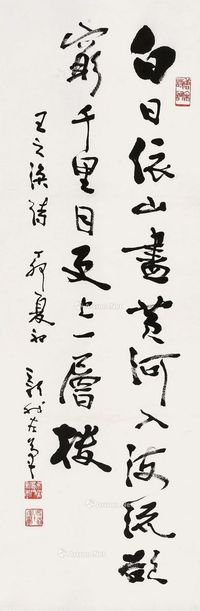 白日依山盡黃河入海流欲
窮千里目更上一層樓
王之渙詩 丁卯夏初